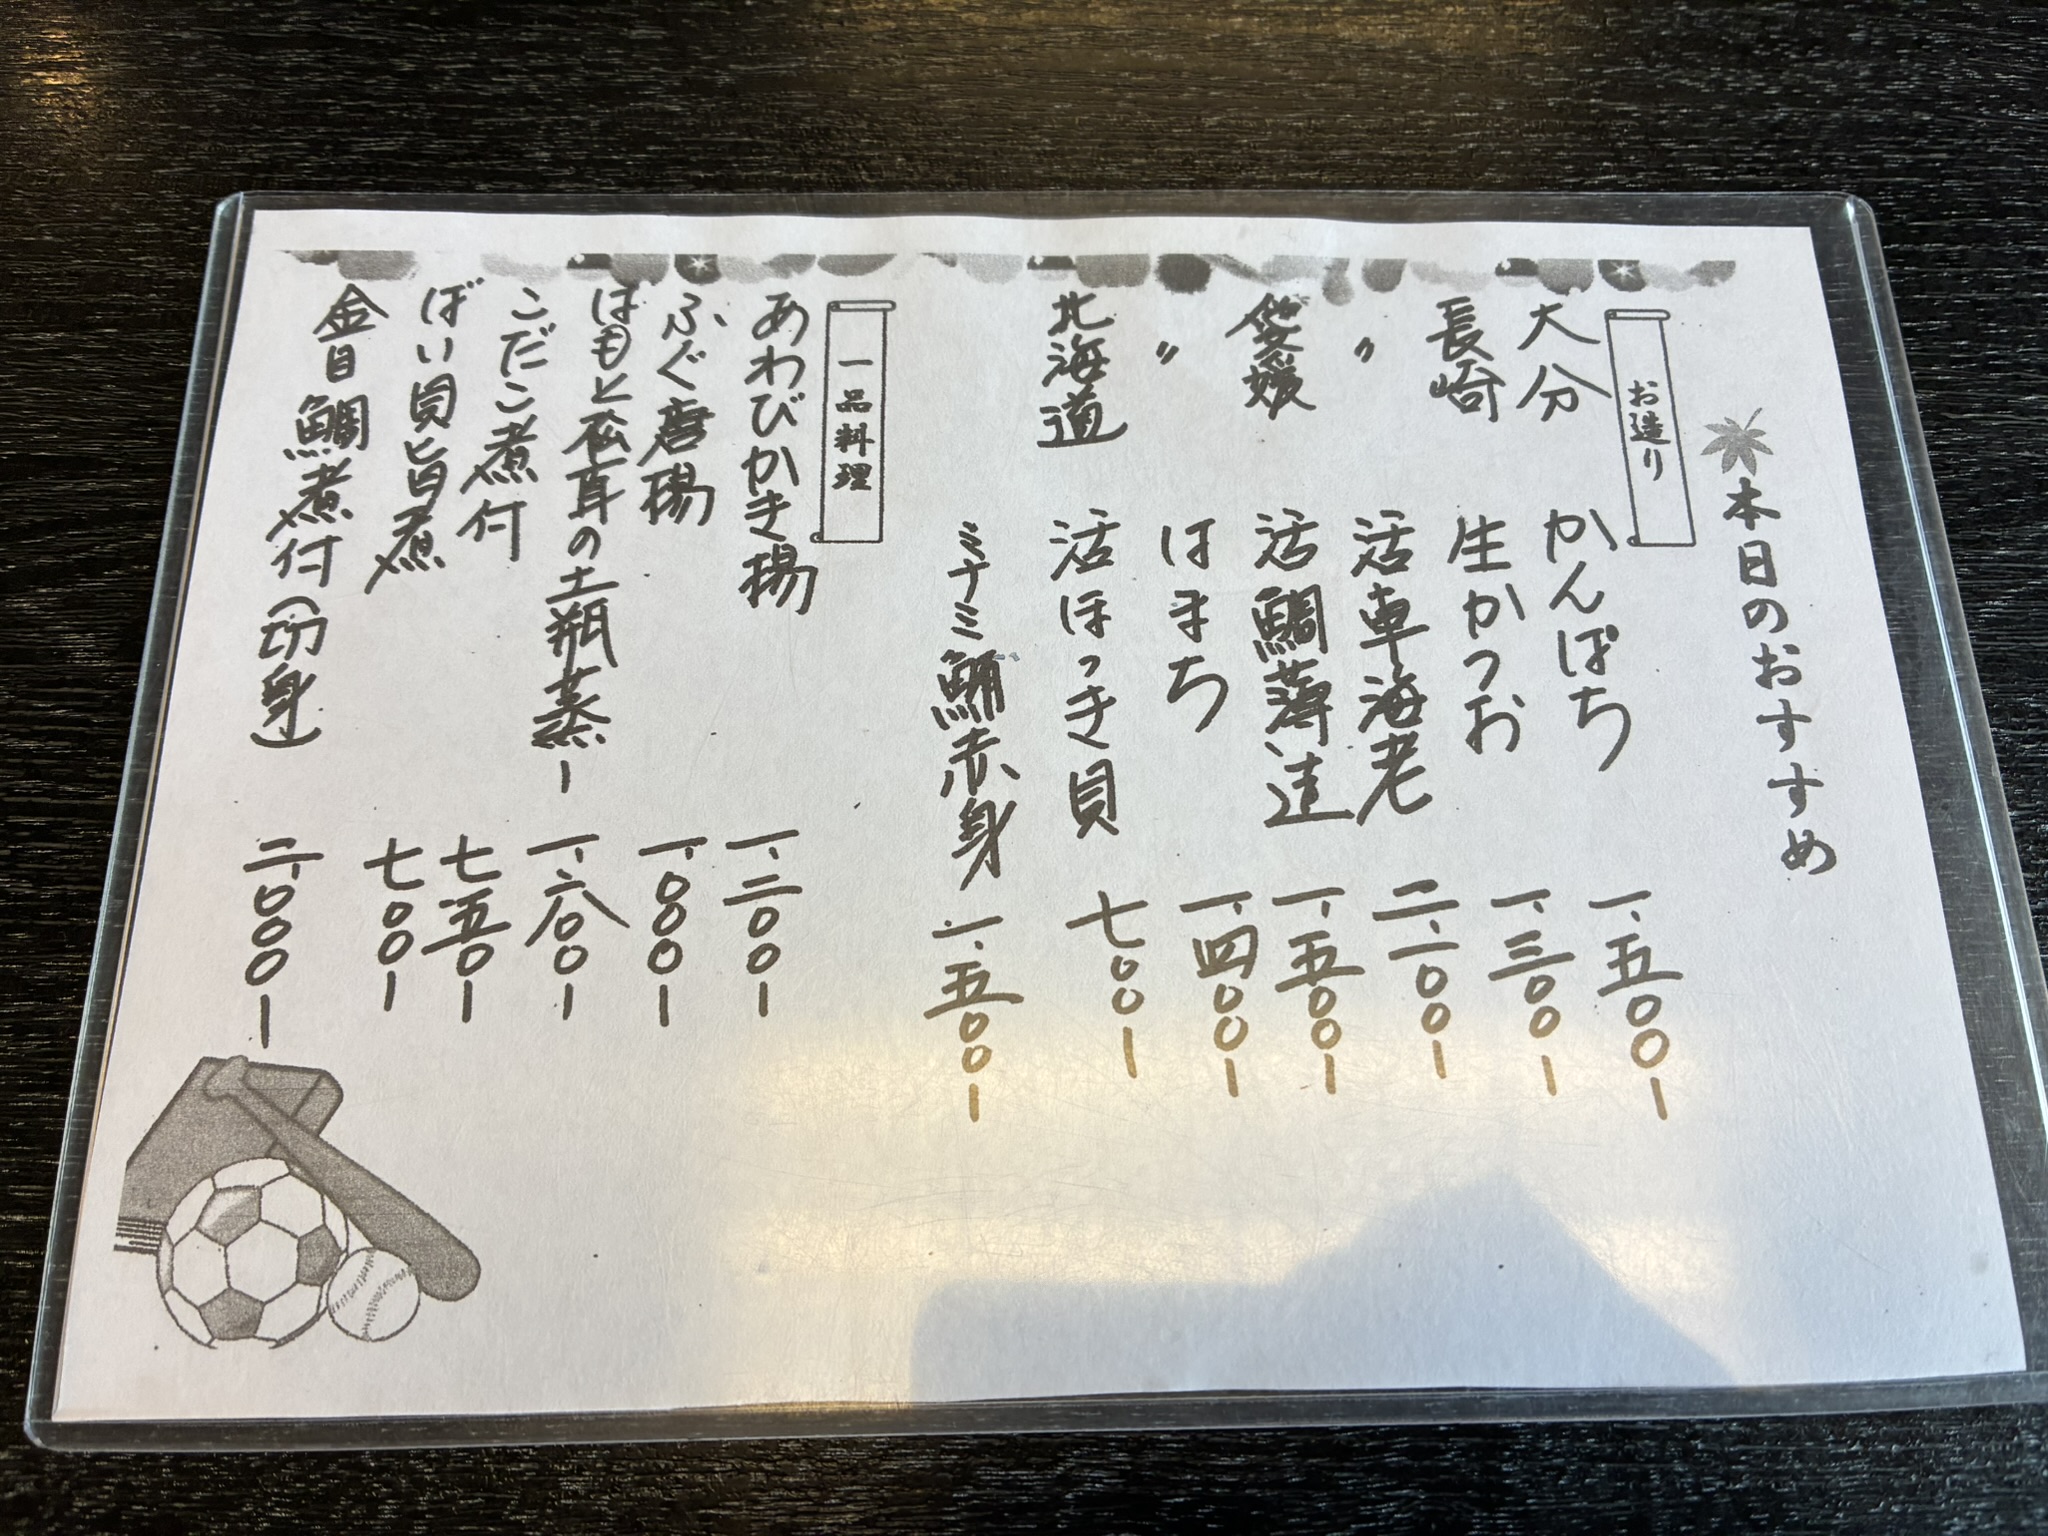 本日のおすすめ
お造り
大分 かんぱち 一、五〇〇ー
長崎 生かつお 一、三〇〇ー
〃 活車海老 二、一〇〇ー
愛媛 活鯛薄造 一、五〇〇ー
〃 はまち 一、四〇〇ー
北海道 活ほっき貝 七〇〇ー
ミナミ鮪赤身 一、五〇〇ー
一品料理
あわびかき揚 一、二〇〇ー
ふぐ唐揚 一、〇〇〇ー
はもと松茸の土瓶蒸し 一、六〇〇ー
こだこ煮付 七五〇ー
ばい貝旨煮 七〇〇ー
金目鯛煮付（切身） 二、〇〇〇ー